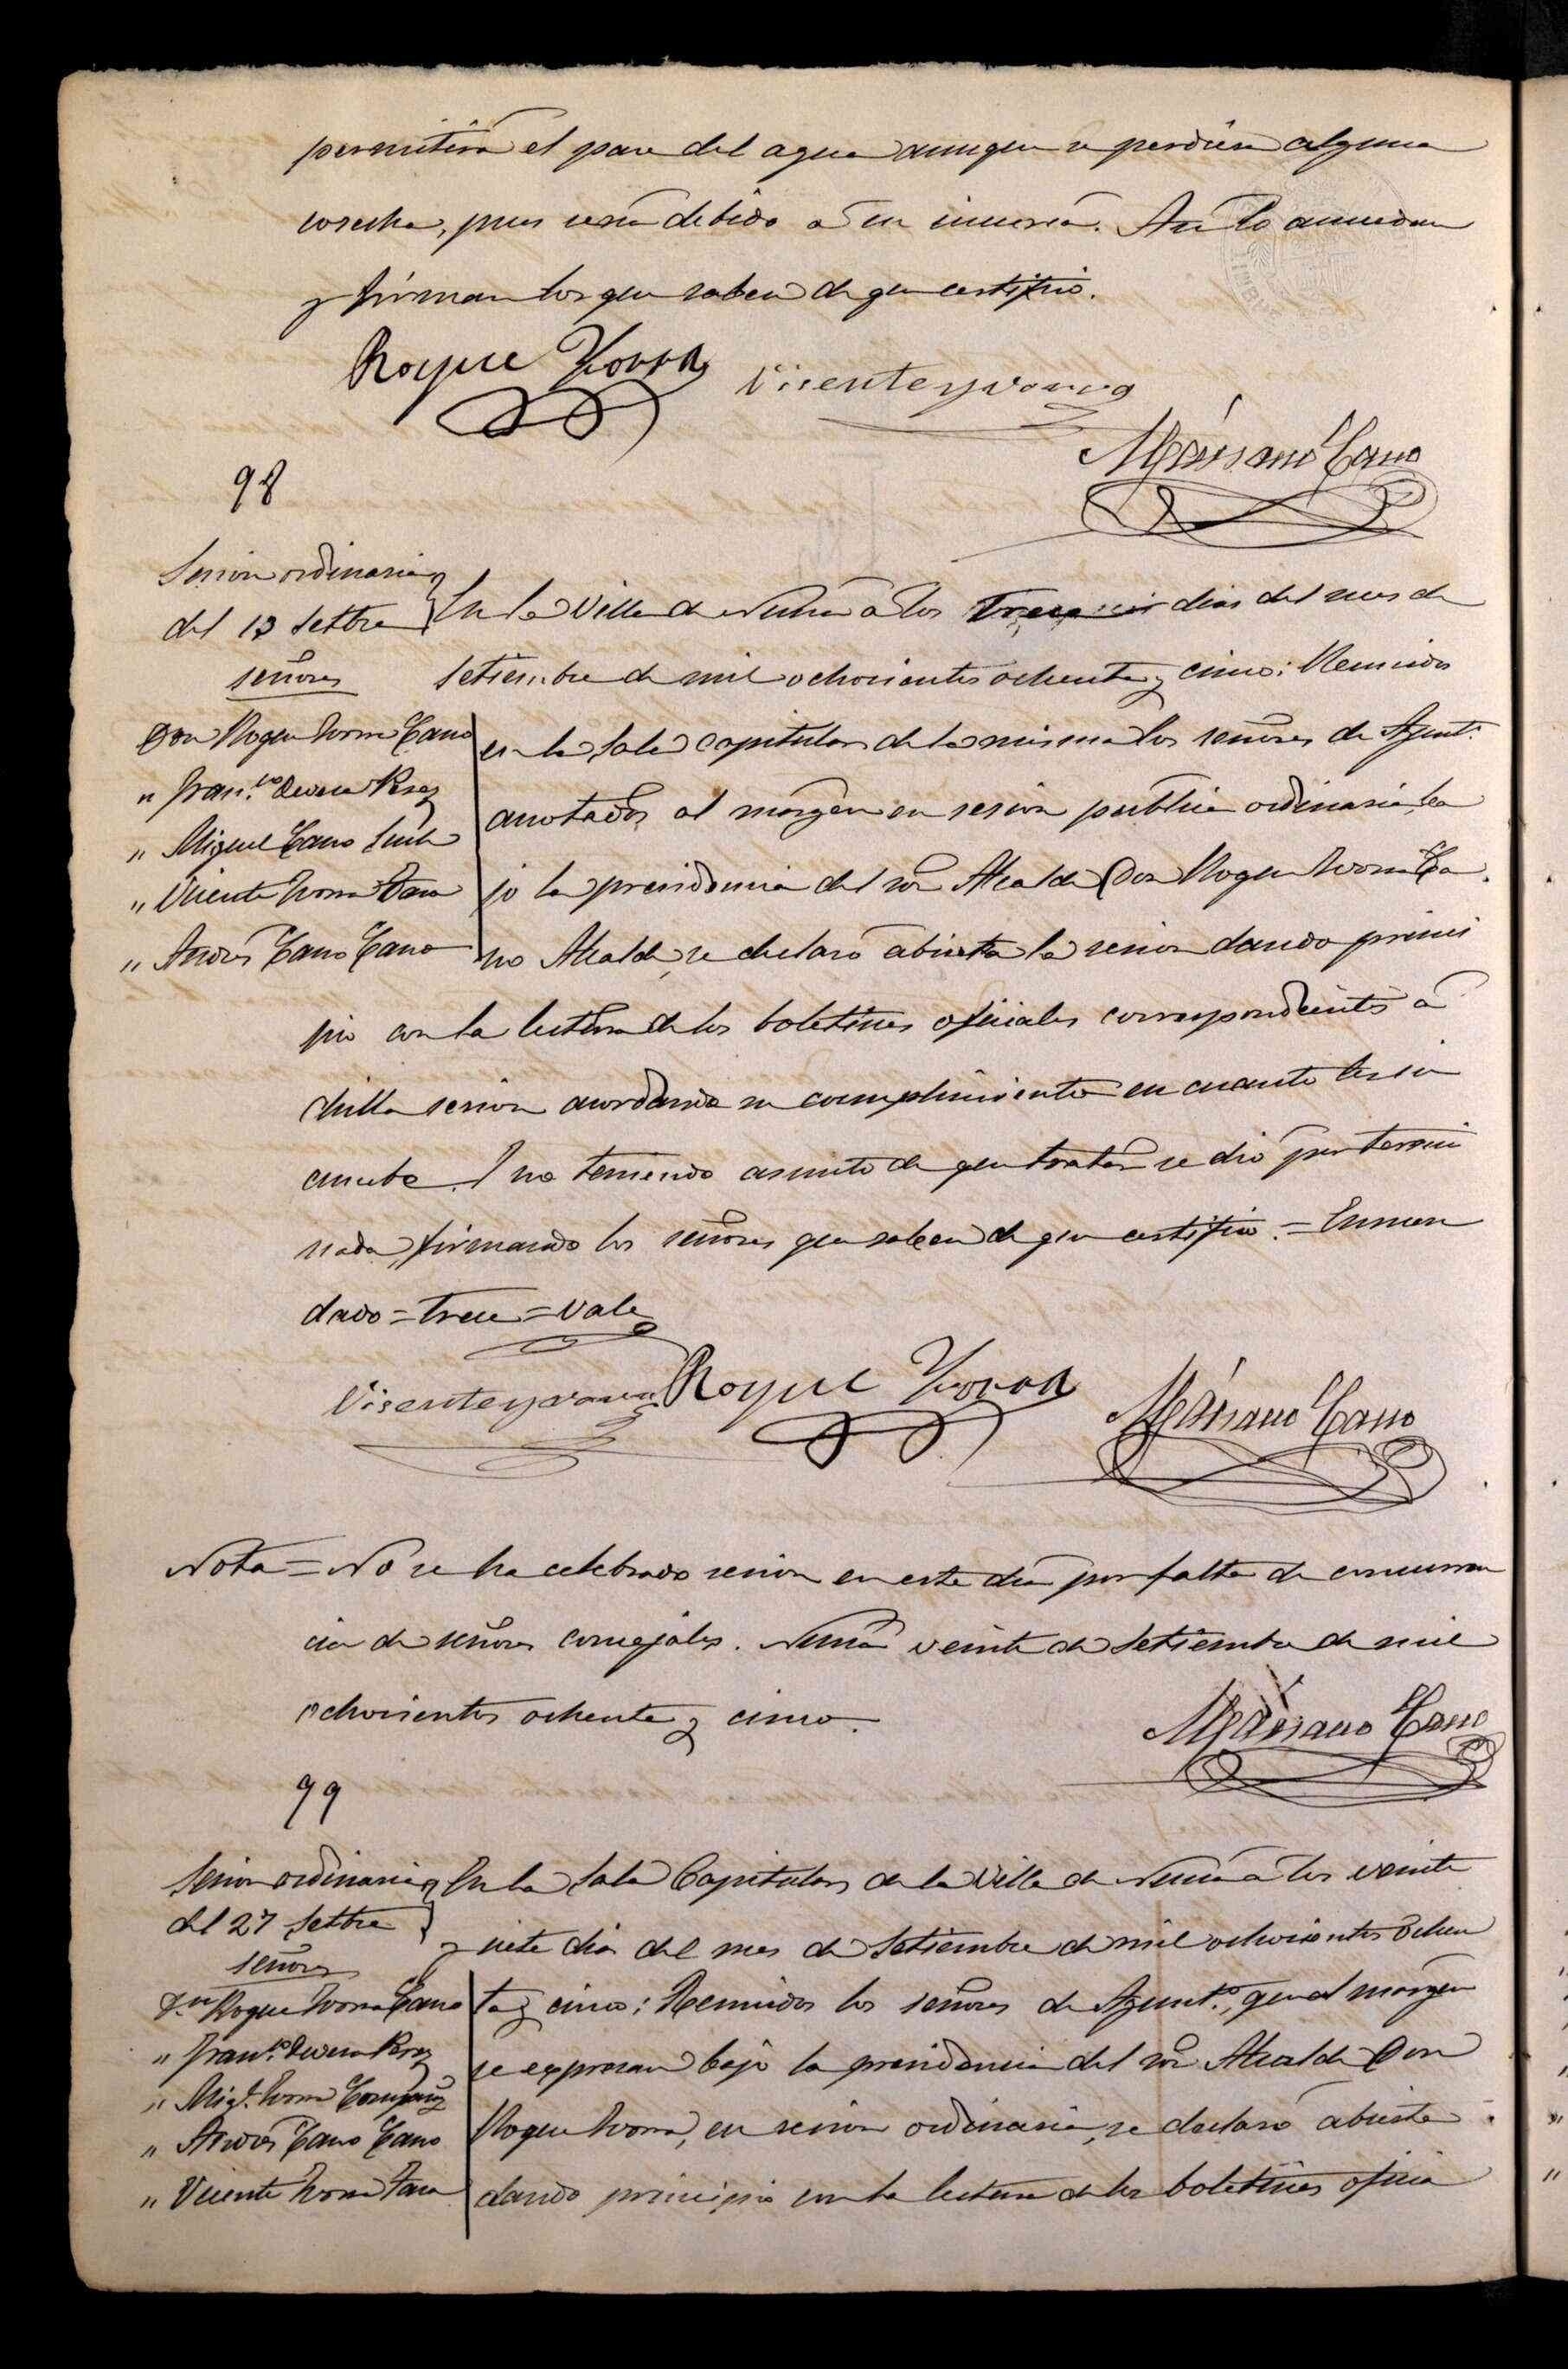 permitirá el pase del agua aunque se perdiera alguna
cosecha, pues será debido a su incuria. Así lo acuerdan
y firman los que saben de que certifico.
Roque Yvorra Vicente yvorra
Mariano Cano
98
Sesion ordinaria
del 13 Settbre
señores
Don Roque Yvorra Cano
" Fran.co Devesa Perez
" Miguel Cano Such
" Vicente Yvorra
" Andrés Cano Cano
En la Villa de Nucia á los Trece dias del mes de
Setiembre de mil ochocientos ochenta y cinco: Reunidos
en la Sala Capitular de la misma los señores de Ayunt.o
anotados al margen en sesion publica ordinaria, ba
jo la presidencia del sor Alcalde Don Roque Yvorra Ca
no Alcalde, se declaró abierta la sesion dando princi
pio con la lectura de los boletines oficiales correspondientes á
dicha sesion acordando su cumplimiento en cuanto les in
cumbe. Y no teniendo asunto de que tratar se dió por termi
nada, firmando los señores que saben de que certifico. = Enmen
dado = trece = vale
Vicente yvorra Roque Yvorra Mariano Cano
Nota = No se ha celebrado sesion en este dia por falta de concurren
cia de señores concejales. Nucia veinte de Setiembre de mil
ochocientos ochenta y cinco.
Mariano Cano
99
Sesion ordinaria
del 27 Settbre
señores
D.n Roque Yvorra Cano
" Fran.co Devesa Perez
" Mig.l Yvorra Company
" Andrés Cano Cano
" Vicente Yvorra
En la Sala Capitular de la Villa de Nucia á los veinte
y siete dias del mes de Setiembre de mil ochocientos ochen
ta y cinco: Reunidos los señores de Ayunt.o, que al margen
se expresan bajo la presidencia del sor Alcalde Don
Roque Yvorra, en sesion ordinaria, se declaró abierta
dando principio con la lectura de los boletines oficia